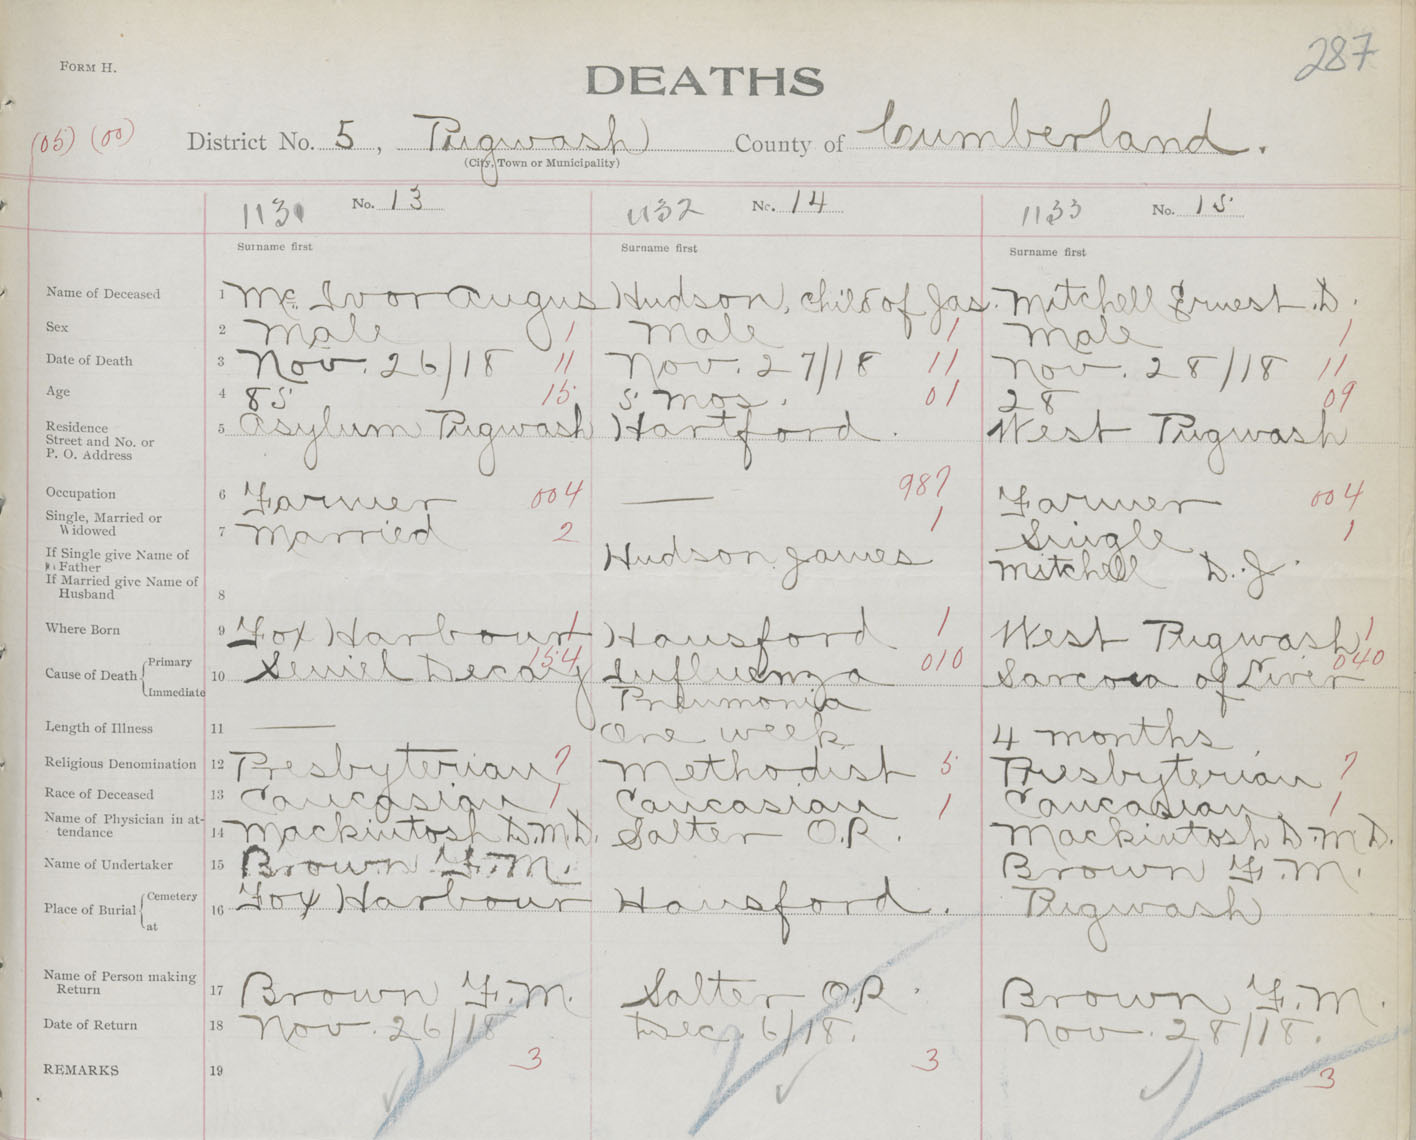 287
FORM H.
DEATHS
(05) (00) District No. 5, Pugwash County of Cumberland.
(City, Town or Municipality)
1131 No. 13 1132 No. 14 1133 No. 15
Surname first Surname first Surname first
Name of Deceased 1 Mc Ivor Angus Hudson, child of Jas. Mitchell Ernest D.
Sex 2 Male 1 Male 1 Male 1
Date of Death 3 Nov. 26/18 11 Nov. 27/18 11 Nov. 28/18 11
Age 4 85 15 5 mos. 01 28 09
Residence
Street and No. or
P. O. Address
5 Asylum Pugwash Hartford. West Pugwash
Occupation 6 Farmer 004 — 987 Farmer 004
Single, Married or
Widowed
7 Married 2 1 Single 1
If Single give Name of
Father
If Married give Name of
Husband
8 Hudson James Mitchell D. J.
Where Born 9 Fox Harbour 1 Hansford 1 West Pugwash 1
Cause of Death { Primary
Immediate
10 Seniel Decay 154 Influenza 010 Sarcoca of Liver 040
Pneumonia
Length of Illness 11 — One week 4 months
Religious Denomination 12 Presbyterian 7 Methodist 5 Presbyterian 7
Race of Deceased 13 Caucasian 1 Caucasian 1 Caucasian 1
Name of Physician in at-
tendance
14 Mackintosh D.M.D. Salter O.R. Mackintosh D.M.D.
Name of Undertaker 15 Brown F.M. Brown F.M.
Place of Burial { Cemetery
at
16 Fox Harbour Hansford. Pugwash
Name of Person making
Return
17 Brown F.M. Salter O.R. Brown F.M.
Date of Return 18 Nov. 26/18 Dec. 6/18. Nov. 28/18.
REMARKS 19 3 3 3